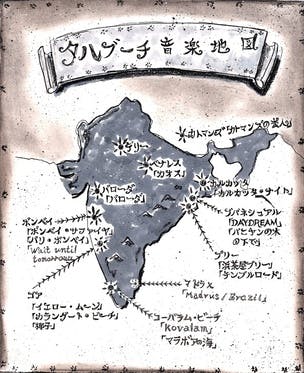 タルブーチ音楽地図
カトマンズ「カトマンズの恋人」
デリー
ベナレス
「カオス」
カルカッタ
「カルカッタ・ナイト」
バローダ
「バローダ」
ボンベイ
「ボンベイ・サファイヤ」
「パリ・ボンベイ」
"Wait until
tomorrow"
ブバネシュアル
「DAYDREAM」
「バニヤンの木
の下で」
プリー
「浜茶屋プリー」
「テンプルロード」
ゴア
「イエロー・ムーン」
「カラングート・ビーチ」
「椰子」
マドラス
"Madras/Brazil"
コーバラム・ビーチ
"Kovalam"
「マラバールの海」